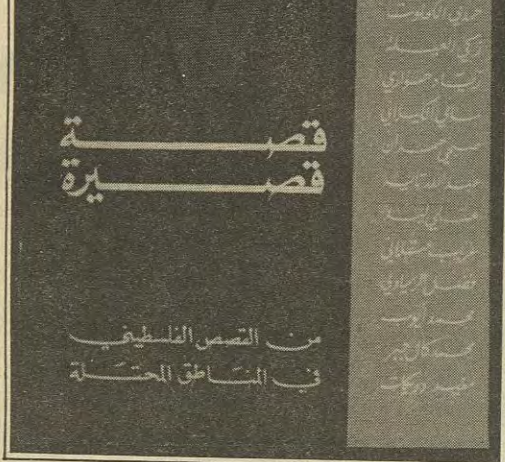 قصة
قصيرة
من القصص الفلسطيني
في المناطق المحتلة
حمدي الكحلوت
زكي العيلة
زياد حواري
سامي الكيلاني
صبحي حمدان
عبد الله تايه
غريب عسقلاني
فضل الريماوي
محمد أيوب
محمد كمال جبر
مفيد دويكات